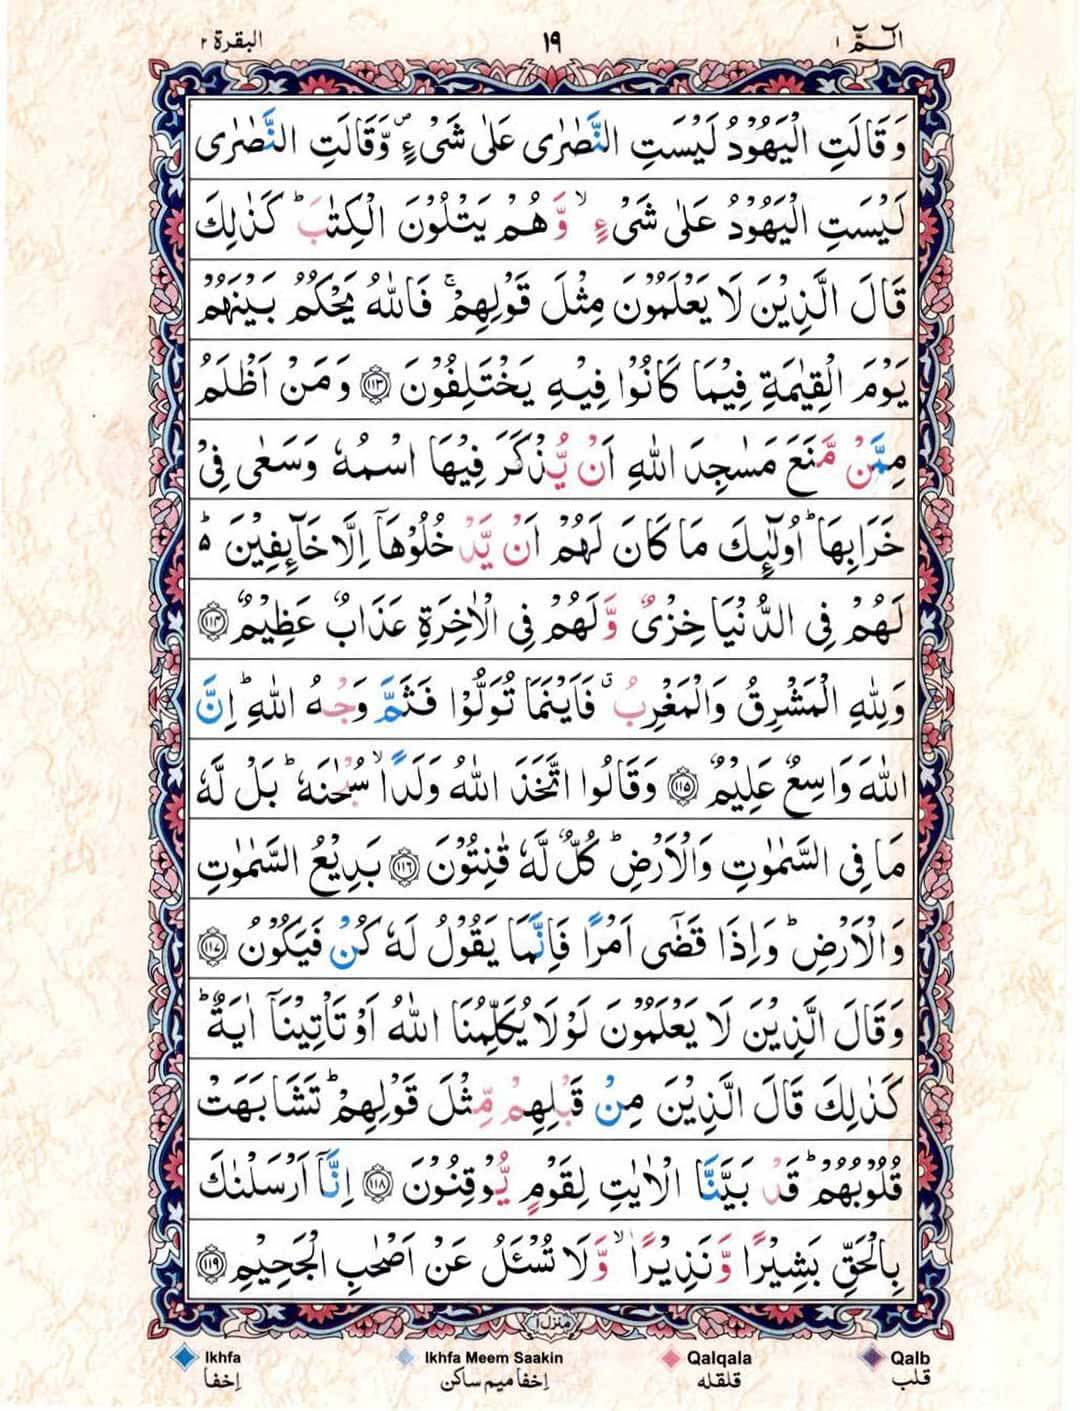 الٓـمّٓ ۱ ۱۹ البقرة ۲
وَ قَالَتِ الْيَهُوْدُ لَيْسَتِ النَّصٰرٰى عَلٰى شَیْءٍ ۪ وَّقَالَتِ النَّصٰرٰى
لَيْسَتِ الْيَهُوْدُ عَلٰى شَیْءٍ ۙ وَّ هُمْ يَتْلُوْنَ الْكِتٰبَ ؕ كَذٰلِكَ
قَالَ الَّذِيْنَ لَا يَعْلَمُوْنَ مِثْلَ قَوْلِهِمْ ۚ فَاللّٰهُ يَحْكُمُ بَيْنَهُمْ
يَوْمَ الْقِيٰمَةِ فِيْمَا كَانُوْا فِيْهِ يَخْتَلِفُوْنَ ﴿۱۱۳﴾ وَ مَنْ اَظْلَمُ
مِمَّنْ مَّنَعَ مَسٰجِدَ اللّٰهِ اَنْ يُّذْكَرَ فِيْهَا اسْمُهٗ وَسَعٰى فِیْ
خَرَابِهَا ؕ اُولٰٓئِكَ مَا كَانَ لَهُمْ اَنْ يَّدْخُلُوْهَاۤ اِلَّا خَآئِفِيْنَ ۵
لَهُمْ فِی الدُّنْيَا خِزْیٌ وَّ لَهُمْ فِی الْاٰخِرَةِ عَذَابٌ عَظِيْمٌ ﴿۱۱۴﴾
وَلِلّٰهِ الْمَشْرِقُ وَالْمَغْرِبُ ۗ فَاَيْنَمَا تُوَلُّوْا فَثَمَّ وَجْهُ اللّٰهِ ؕ اِنَّ
اللّٰهَ وَاسِعٌ عَلِيْمٌ ﴿۱۱۵﴾ وَقَالُوا اتَّخَذَ اللّٰهُ وَلَدًا ۙ سُبْحٰنَهٗ ؕ بَلْ لَّهٗ
مَا فِی السَّمٰوٰتِ وَالْاَرْضِ ؕ كُلٌّ لَّهٗ قٰنِتُوْنَ ﴿۱۱۶﴾ بَدِيْعُ السَّمٰوٰتِ
وَالْاَرْضِ ؕ وَاِذَا قَضٰۤى اَمْرًا فَاِنَّمَا يَقُوْلُ لَهٗ كُنْ فَيَكُوْنُ ﴿۱۱۷﴾
وَقَالَ الَّذِيْنَ لَا يَعْلَمُوْنَ لَوْلَا يُكَلِّمُنَا اللّٰهُ اَوْ تَاْتِيْنَاۤ اٰيَةٌ ؕ
كَذٰلِكَ قَالَ الَّذِيْنَ مِنْ قَبْلِهِمْ مِّثْلَ قَوْلِهِمْ ؕ تَشَابَهَتْ
قُلُوْبُهُمْ ؕ قَدْ بَيَّنَّا الْاٰيٰتِ لِقَوْمٍ يُّوْقِنُوْنَ ﴿۱۱۸﴾ اِنَّاۤ اَرْسَلْنٰكَ
بِالْحَقِّ بَشِيْرًا وَّنَذِيْرًا ۙ وَّلَا تُسْئَلُ عَنْ اَصْحٰبِ الْجَحِيْمِ ﴿۱۱۹﴾
منزل ۱
Ikhfa Ikhfa Meem Saakin Qalqala Qalb
إخفا إخفا میم ساکن قلقله قلب